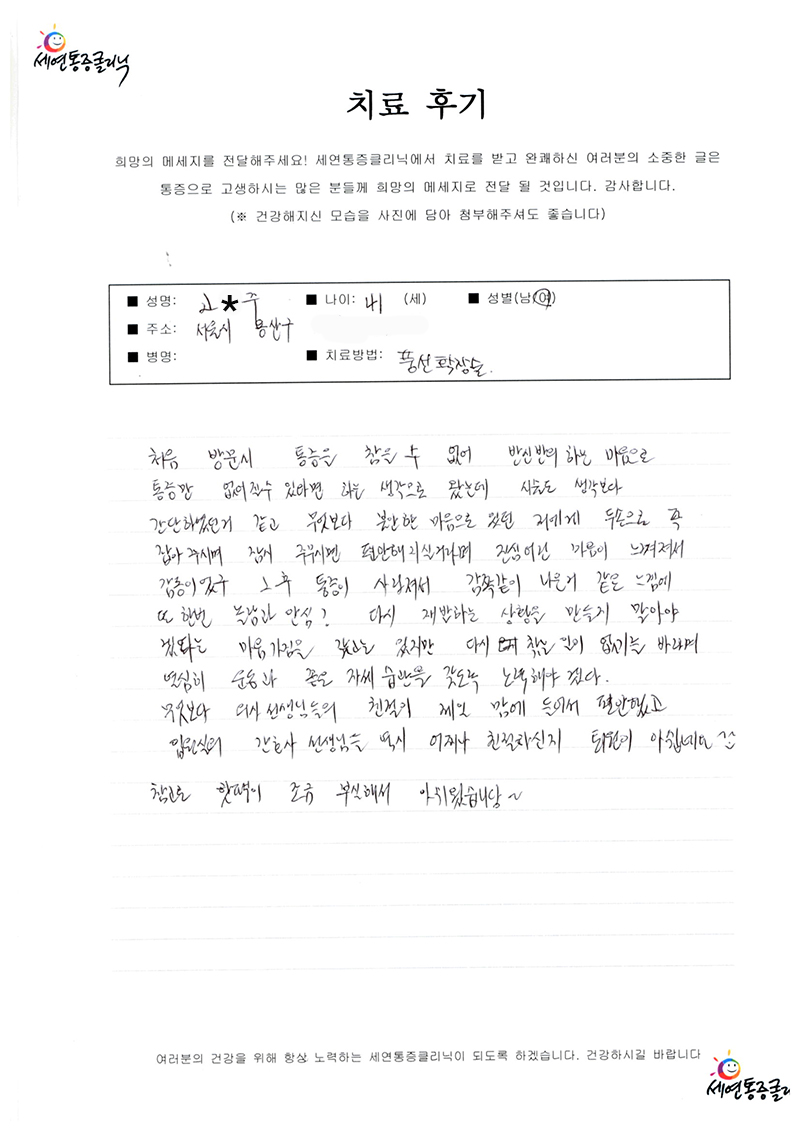 세연통증클리닉
치료 후기
희망의 메세지를 전달해주세요! 세연통증클리닉에서 치료를 받고 완쾌하신 여러분의 소중한 글은
통증으로 고생하시는 많은 분들께 희망의 메세지로 전달 될 것입니다. 감사합니다.
(※ 건강해지신 모습을 사진에 담아 첨부해주셔도 좋습니다)
■ 성명: 고*주 ■ 나이: 41 (세) ■ 성별(남/여)
■ 주소: 서울시 용산구
■ 병명: ■ 치료방법: 풍선확장술.
처음 방문시 통증을 참을 수 없어 반신반의 하는 마음으로
통증만 없어질수 있다면 하는 생각으로 왔는데 시술도 생각보다
간단하였던거 같고 무엇보다 불안한 마음으로 있던 저에게 두손으로 꼭
잡아 주시며 잠깐 주무시면 편안해지실거라며 진심어린 마음이 느껴져서
감동이었구 그 후 통증이 사라져서 감쪽같이 나은거 같은 느낌에
또 한번 놀람과 안심? 다시 재발하는 상황을 만들게 말아야
겠다는 마음가짐을 갖고는 있지만 다시 찾는 일이 없기를 바라며
열심히 운동과 좋은 자세 습관을 갖도록 노력해야 겠다.
무엇보다 의사 선생님들의 친절이 제일 맘에 들어서 편안했고
입원실의 간호사 선생님들 역시 어찌나 친절하신지 퇴원이 아쉽네요
참고로 핫팩이 조금 부실해서 아쉬웠습니당~
여러분의 건강을 위해 항상 노력하는 세연통증클리닉이 되도록 하겠습니다. 건강하시길 바랍니다
세연통증클리